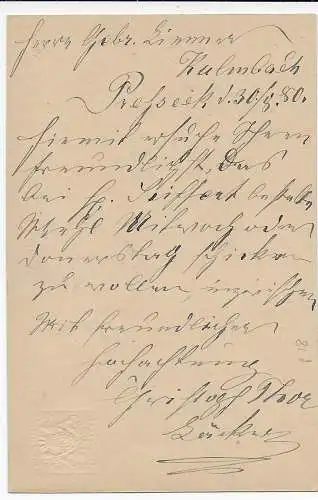 Herrn Gebr. Liemer
Kulmbach
Presseck d. 30./8. 80.
Hiemit ersuche Ihnen
freundlichst, das
bei H. Seiffert bestelte
Mehl Mitwoch oder
donerstag schicken
zu wollen,
Mit freundlicher
Hochachtung
Christoph Thor
Bäcker